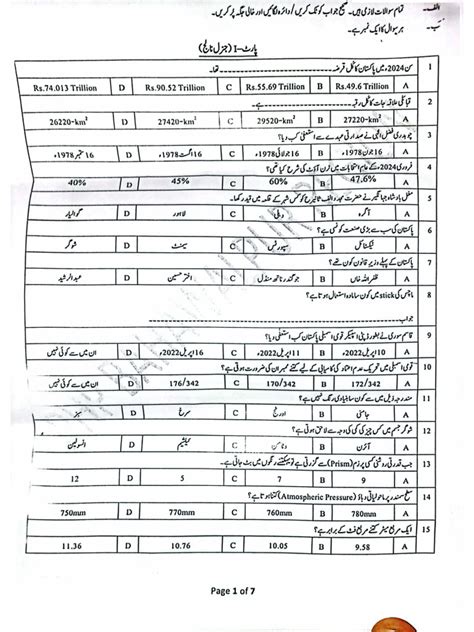 الف۔ تمام سوالات لازمی ہیں۔ صحیح جواب کو ٹک کریں / دائرہ لگائیں اور خالی جگہ پر کریں۔
ب۔ ہر سوال کا ایک نمبر ہے۔
پارٹ-I (جنرل نالج)
1 سن 2024ء میں پاکستان کا کل قرضہ ۔۔۔ تھا۔
A Rs.49.6 Trillion B Rs.55.69 Trillion C Rs.90.52 Trillion D Rs.74.013 Trillion
2 قبائلی علاقہ جات کا کل رقبہ ۔۔۔ ہے۔
A 27220-km² B 29520-km² C 27420-km² D 26220-km²
3 چوہدری فضل الٰہی نے صدارتی عہدے سے استعفیٰ کب دیا؟
A 16 جون 1978ء B 16 جولائی 1978ء C 16 اگست 1978ء D 16 ستمبر 1978ء
4 فروری 2024ء کے عام انتخابات میں ٹرن آؤٹ کی شرح کیا تھی؟
A 47.6% B 60% C 45% D 40%
5 مغل بادشاہ جہانگیر نے حضرت مجدد الف ثانی کو کس شہر کے قلعہ میں قید رکھا۔
A آگرہ B دہلی C لاہور D گوالیار
6 پاکستان کی سب سے بڑی صنعت کونسی ہے؟
A ٹیکسٹائل B سپورٹس C سیمنٹ D شوگر
7 پاکستان کے پہلے وزیر قانون کون تھے؟
A ظفر اللہ خاں B جوگندر ناتھ منڈل C اختر حسین D عبدالرشید
8 ماچس کی stick میں کون سا مادہ استعمال ہوتا ہے؟
جواب ۔
9 قاسم سوری نے بطور ڈپٹی اسپیکر قومی اسمبلی پاکستان کب استعفیٰ دیا؟
A 2022ء B 11 اپریل 2022ء C 16 اپریل 2022ء D ان میں سے کوئی نہیں
10 قومی اسمبلی میں تحریک عدم اعتماد کی کامیابی کے لیے کتنے ممبران کی ضرورت ہوتی ہے؟
A 172/342 B 170/342 C 176/342 D ان میں سے کوئی نہیں
11 مندرجہ ذیل میں سے کون سا بنیادی رنگ نہیں ہے؟
A جامنی B اورنج C سرخ D سبز
12 شوگر جسم میں کس چیز کی کمی کی وجہ سے لاحق ہوتی ہے؟
A آئرن B وٹامن C کیلشیم D انسولین
13 جب قدرتی روشنی کسی پرزم (Prism) سے گزرتی ہے تو یہ کتنے رنگوں میں بٹ جاتی ہے۔
A 9 B 7 C 5 D 12
14 سطح سمندر پر ماحولیاتی دباؤ (Atmospheric Pressure) کتنا ہوتا ہے؟
A 780mm B 760mm C 770mm D 750mm
15 ایک مربع میٹر کتنے مربع فٹ کے برابر ہے؟
A 9.58 B 10.05 C 10.76 D 11.36
Page 1 of 7